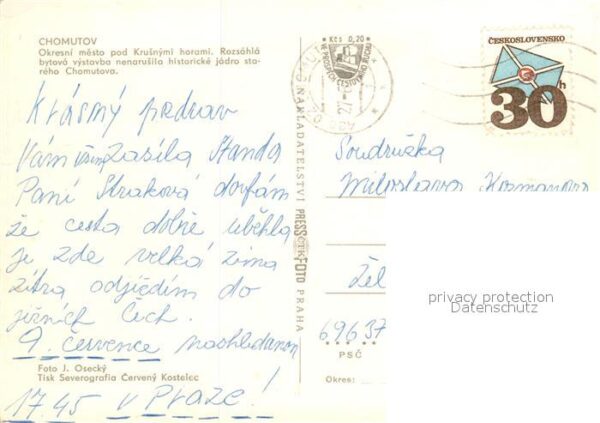 CHOMUTOV
Okresní město pod Krušnými horami. Rozsáhlá
bytová výstavba nenarušila historické jádro sta-
rého Chomutova.
Krásný pozdrav
Vám všem zasílá Standa
Paní Straková doufám
že cesta dobře uběhla
je zde velká zima
zítra odjíždím do
jižních Čech.
9. července nashledanou
17.45 v Praze!
Foto J. Osecký
Tisk Severografia Červený Kostelec
NAKLADATELSTVÍ PRESSFOTO PRAHA
ČTK
Kčs 0,20
ČESKOSLOVENSKO
30h
Soudružka
Miloslava
Žel
696 37
PSČ
Okres:
privacy protection
Datenschutz